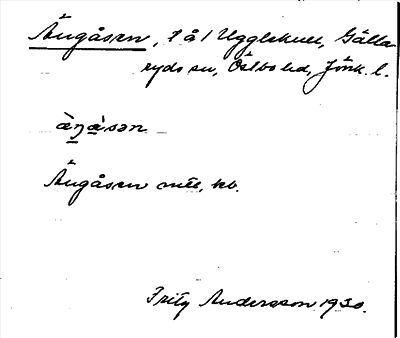 Ängåsen, t å l Ugglekull, Gälla-
ryds sn, Östbo hd, Jönk. l.
àŋàsən
Ängåsen mtl, kb.
Fritz Andersson 1930.